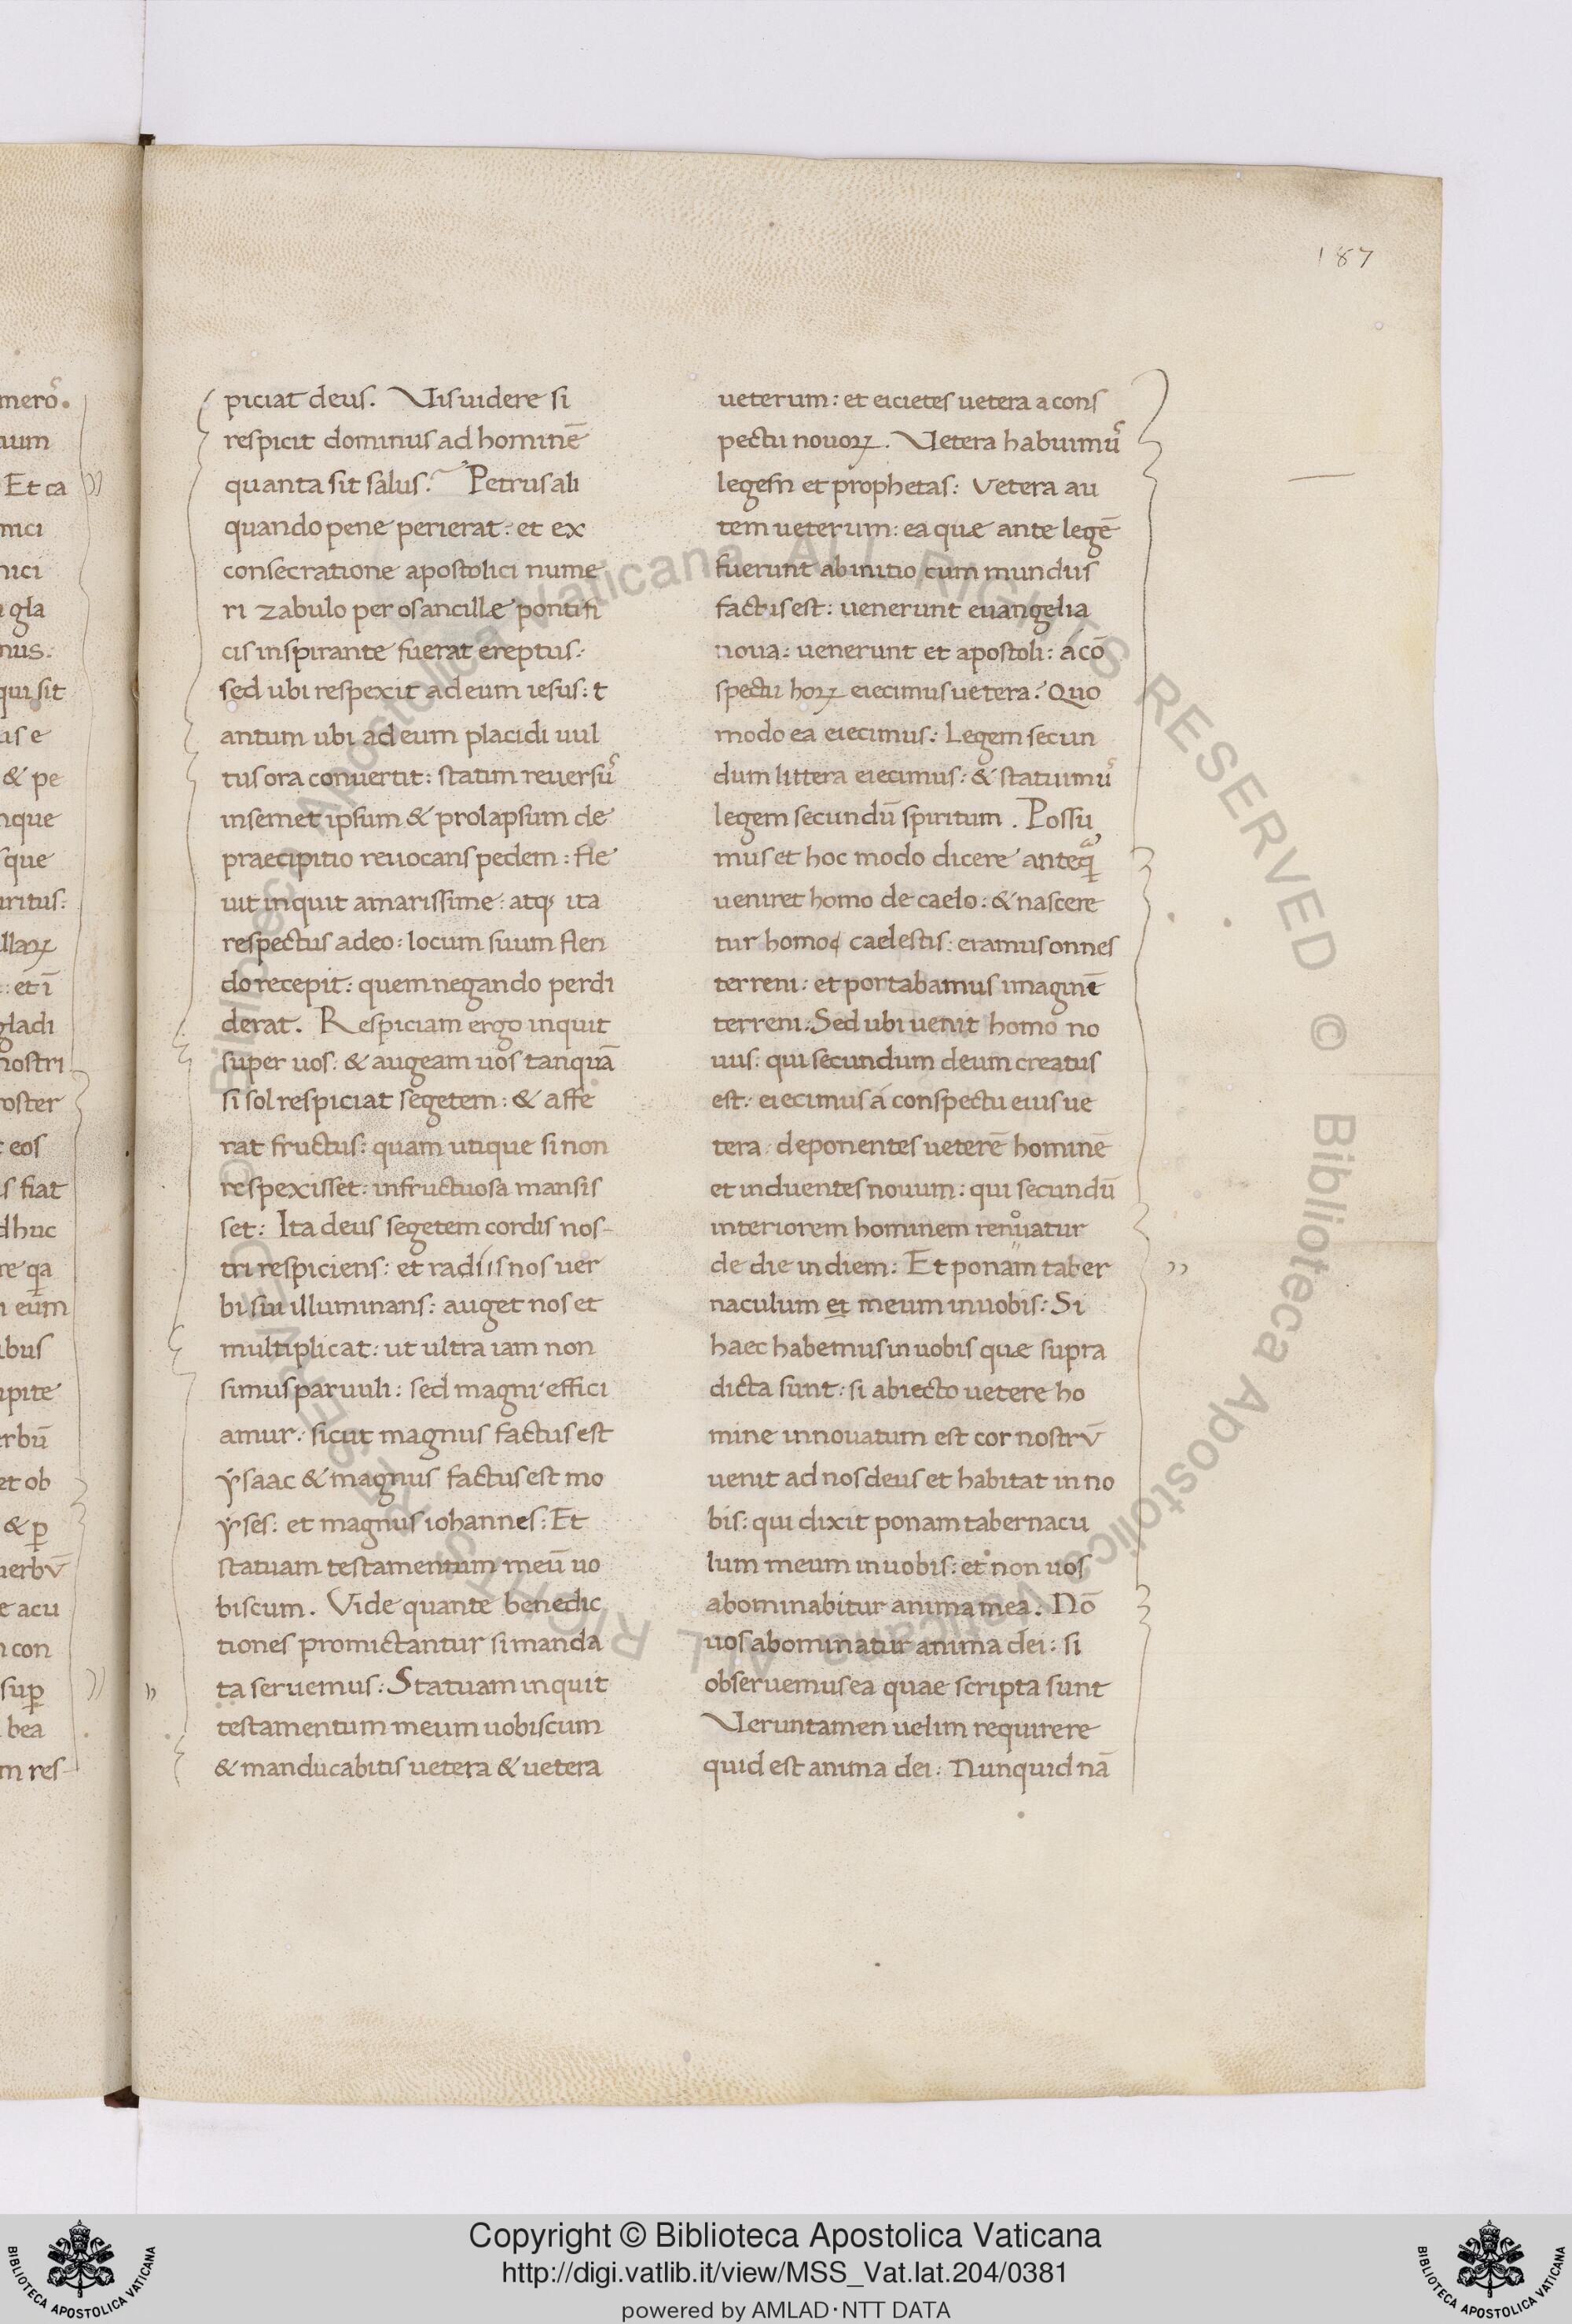 187
piciat deus. Uis uidere si
respicit dominus ad hominē
quanta sit salus. Petrus ali
quando pene perierat: et ex
consecratione apostolici nume
ri zabulo per os ancillę pontifi
cis inspirante fuerat ereptus:
sed ubi respexit ad eum iesus: t
antum ubi ad eum placidi uul
tus ora conuertit: statim reuersus
in semet ipsum & prolapsum de
praecipitio reuocans pedem: fle
uit inquit amarissime: atq; ita
respectus a deo: locum suum flen
do recepit: quem negando perdi
derat. Respiciam ergo inquit
super uos: & augeam uos tanquā
si sol respiciat segetem: & affe
rat fructus: quam utique si non
respexisset: infructuosa mansis
set: Ita deus segetem cordis nos-
tri respiciens: et radiis nos uer
bi sui illuminans: auget nos et
multiplicat: ut ultra iam non
simus paruuli: sed magni effici
amur: sicut magnus factus est
ẏsaac & magnus factus est mo
ẏses: et magnus iohannes: Et
statuam testamentum meū uo
biscum. Vide quante benedic
tiones promictantur si manda
ta seruemus: Statuam inquit
testamentum meum uobiscum
& manducabitis uetera & uetera
ueterum: et eicietes uetera a cons
pectu nouoꝝ. Vetera habuimus
legem et prophetas: Vetera au
tem ueterum: ea quæ ante legē
fuerunt ab initio cum mundus
factus est: uenerunt euangelia
noua: uenerunt et apostoli: a cō
spectu hoꝝ eiecimus uetera: Quo
modo ea eiecimus: Legem secun
dum littera eiecimus: & statuimus
legem secundū spiritum. Possu
mus et hoc modo dicere anteq̃
ueniret homo de caelo: & nascere
tur homo caelestis: eramus onnes
terreni: et portabamus imaginē
terreni: Sed ubi uenit homo no
uus: qui secundum deum creatus
est: eiecimus á conspectu eius ue
tera: deponentes ueterē hominē
et induentes nouum: qui secundū
interiorem hominem renouatur
de die in diem: Et ponam taber
naculum et meum in uobis: Si
haec habemus in uobis quæ supra
dicta sunt: si abiecto uetere ho
mine innouatum est cor nostrū
uenit ad nos deus et habitat in no
bis: qui dixit ponam tabernacu
lum meum in uobis: et non uos
abominabitur anima mea. Nō
uos abominatur anima dei: si
obseruemus ea quae scripta sunt
Ueruntamen uelim requirere
quid est anima dei: Nunquid nā
Copyright © Biblioteca Apostolica Vaticana
http://digi.vatlib.it/view/MSS_Vat.lat.204/0381
powered by AMLAD·NTT DATA
BIBLIOTECA APOSTOLICA VATICANA
BIBLIOTECA APOSTOLICA VATICANA